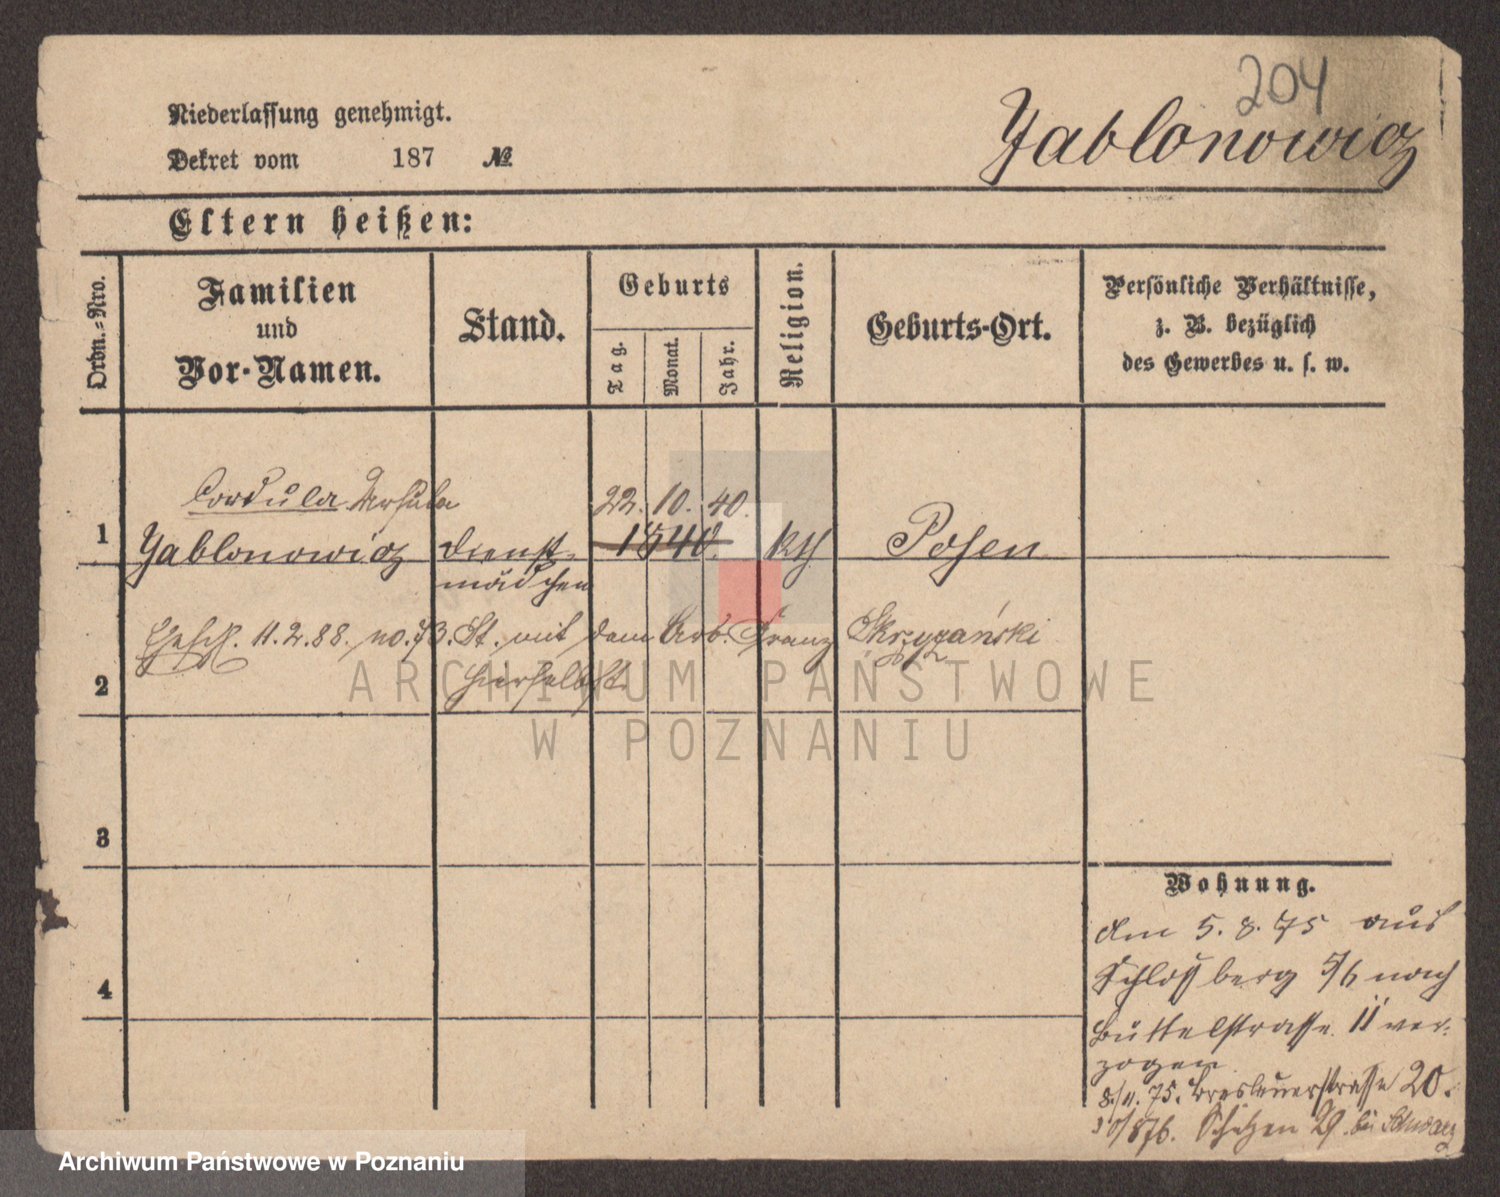 204
Niederlassung genehmigt.
Yablonowicz
Dekret vom 187 №
Eltern heißen:
Ordn.=Nro.
Familien
und
Vor-Namen.
Stand.
Geburts
Tag.
Monat.
Jahr.
Religion.
Geburts-Ort.
Persönliche Verhältnisse,
z. B. bezüglich
des Gewerbes u. s. w.
Cordula Ursula 22. 10. 40.
1 Yablonowicz Dienst- 1840. kth Posen
mädchen
11.2.88. no. 73. St. mit dem Arb. Franz Skrzyzański
2 hierselbst.
3
4
Wohnung.
den 5. 8. 75 aus
Schloßberg 5/6 nach
Büttelstrasse 11 ver-
zogen
8/11. 75. Breslauerstrasse 20.
30/8 76. Schützen 29 bei
ARCHIWUM PAŃSTWOWE
W POZNANIU
Archiwum Państwowe w Poznaniu